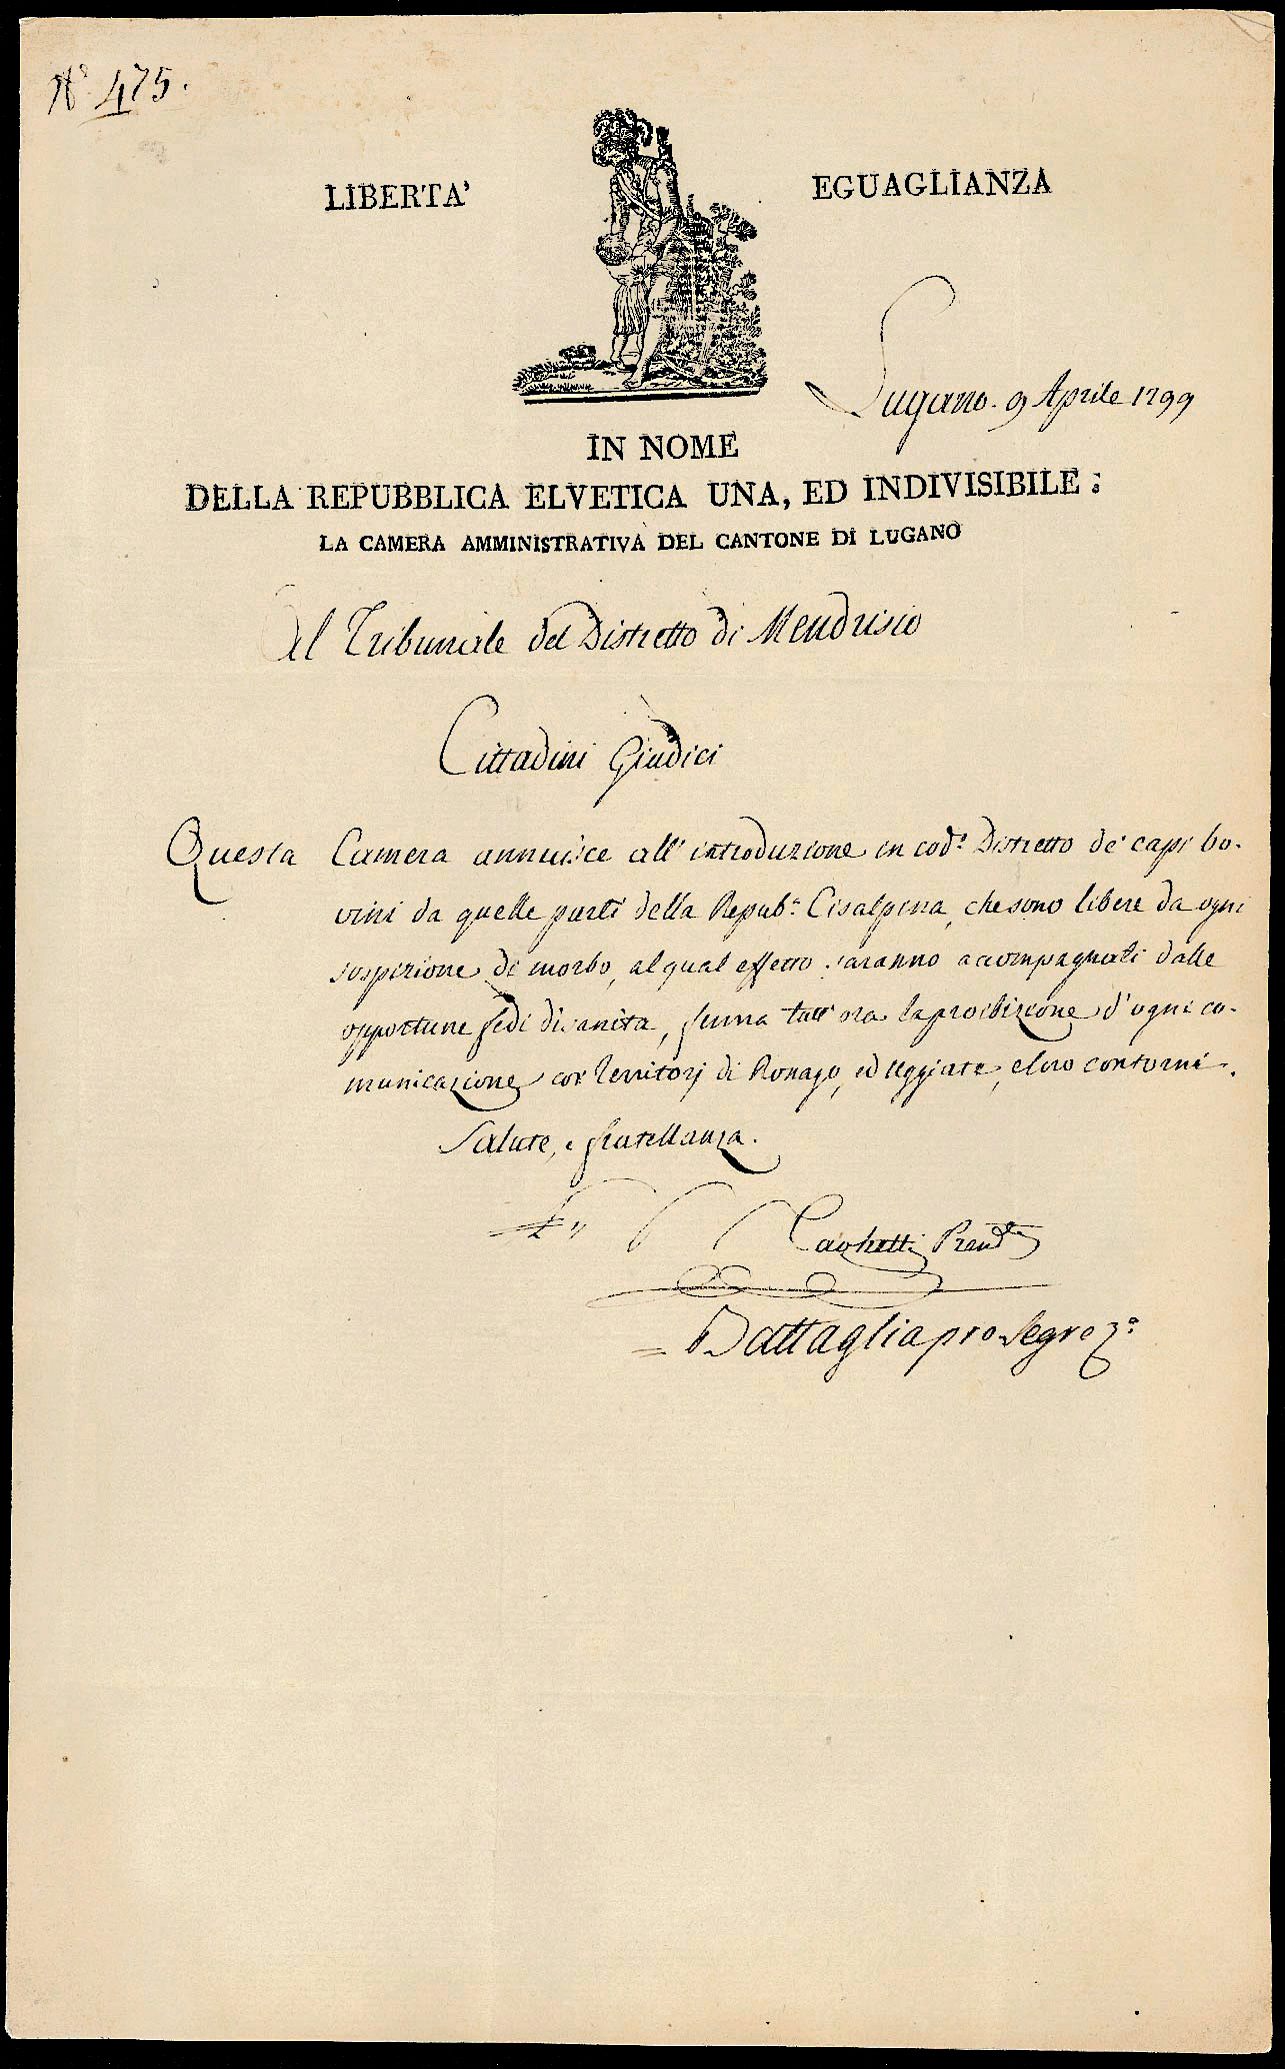 N.° 475.
LIBERTA'
EGUAGLIANZA
Lugano. 9 Aprile 1799
IN NOME
DELLA REPUBBLICA ELVETICA UNA, ED INDIVISIBILE:
LA CAMERA AMMINISTRATIVA DEL CANTONE DI LUGANO
Al Tribunale del Distretto di Mendrisio
Cittadini Giudici
Questa Camera annuisce all'introduzione in cod.° Distretto de' capi bo-
vini da quelle parti della Repub.a Cisalpina, che sono libere da ogni
sospizione di morbo, al qual effetto saranno accompagnati dalle
opportune fedi di sanità, ferma tutt'ora la proibizione d'ogni co-
municazione coi Territorj di Ronago, ed Uggiate, e loro contorni.
Salute, e fratellanza.
Caghetti
Battaglia pro Segrez.°